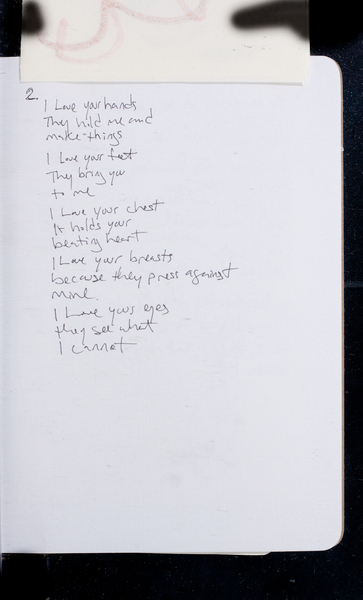 2.
I Love your hands
They hold me and
make things
I Love your feet
They bring you
to me
I Love your chest
It holds your
beating heart
I Love your breasts
because they press against
mine.
I Love your eyes
they see what
I cannot